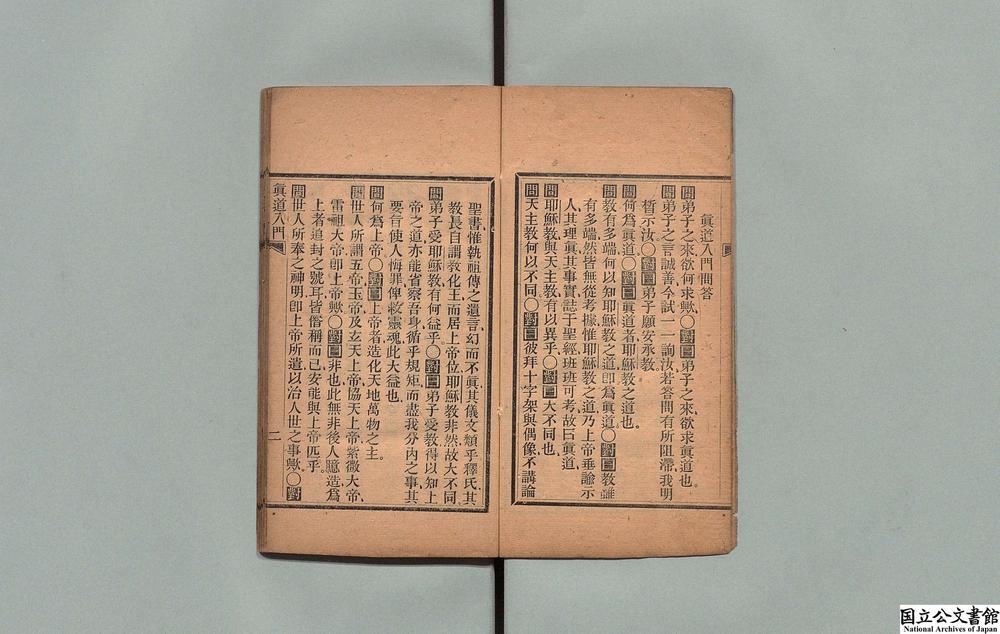 眞道入門問答
問弟子之來欲何求歟〇對曰弟子之來欲求眞道也
問弟子之言誠善今試一一詢汝若答問有所阻滯我明
暫示汝〇對曰弟子願安承敎
問何爲眞道〇對曰眞道者耶穌敎之道也
問敎有多端何以知耶穌敎之道卽爲眞道〇對曰敎雖
有多端然皆無從考據惟耶穌敎之道乃上帝垂諭示
人其理眞其事實誌于聖經班班可考故曰眞道
問耶穌敎與天主敎有以異乎〇對曰大不同也
問天主敎何以不同〇對曰彼拜十字架與偶像不講論
聖書惟執祖傳之遺言幻而不眞其儀文類乎釋氏其
敎長自謂敎化王而居上帝位耶穌敎非然故大不同
問弟子受耶穌敎有何益乎〇對曰弟子受敎得以知上
帝之道亦能省察吾身循乎規矩而盡我分內之事其
要旨使人悔罪俾救靈魂此大益也
問何爲上帝〇對曰上帝者造化天地萬物之主
問世人所謂五帝玉帝及玄天上帝協天上帝紫微大帝
雷祖大帝卽上帝歟〇對曰非也此無非後人臆造爲
上者追封之號耳皆僭稱而已安能與上帝匹乎
問世人所奉之神明卽上帝所遣以治人世之事歟〇對
眞道入門
二
国立公文書館
National Archives of Japan